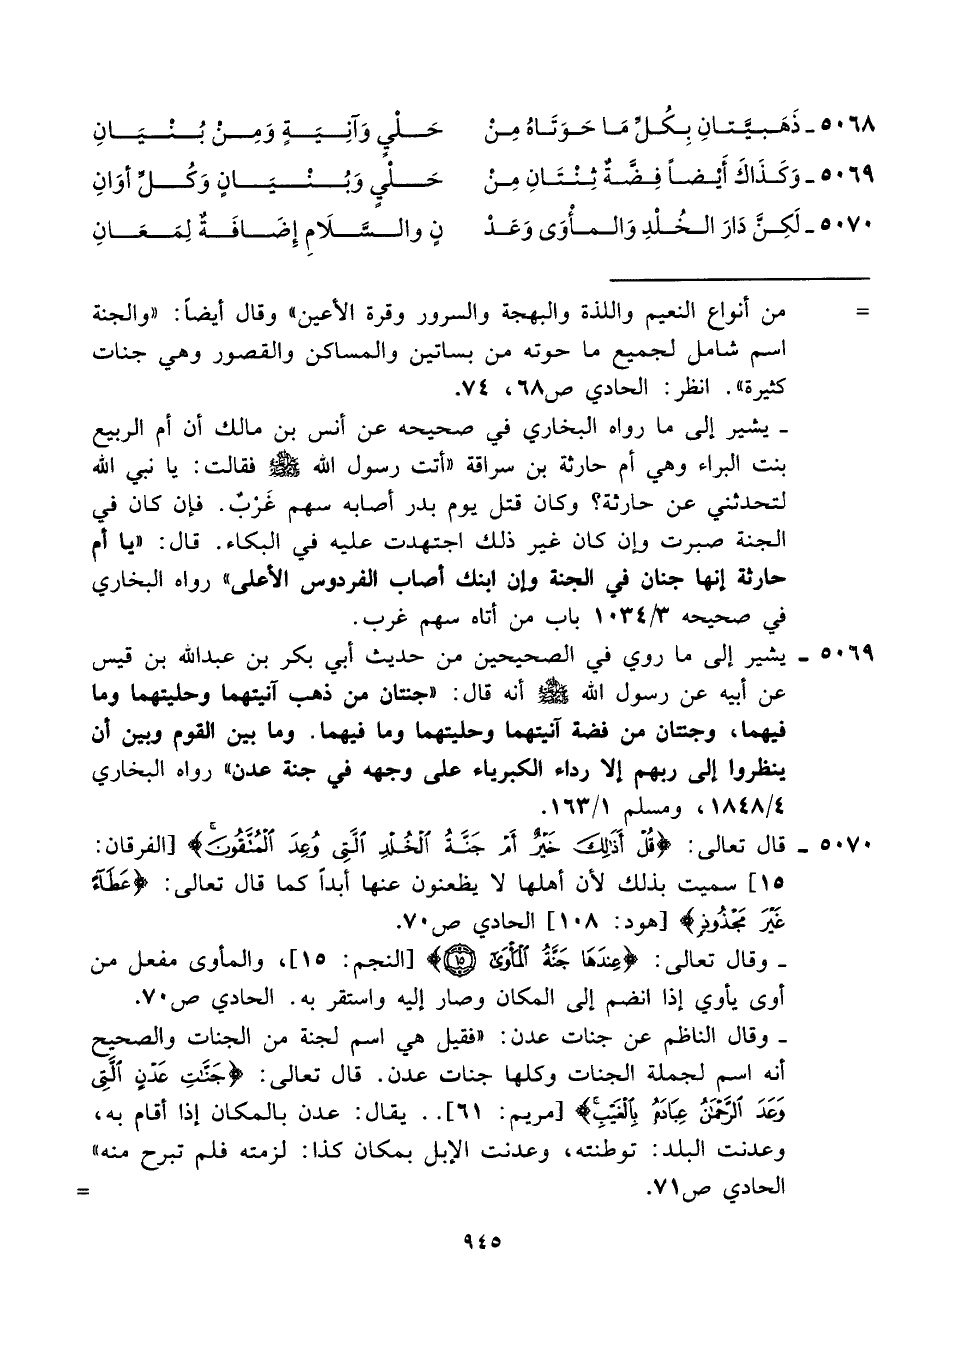 ٥٠٦٨ ـ ذَهَبِيَّتَانِ بِكُلِّ مَا حَوَتَاهُ مِنْ حَلْيٍ وَآنِيَةٍ وَمِنْ بُنْيَانِ
٥٠٦٩ ـ وَكَذَاكَ أَيْضاً فِضَّةٌ ثِنْتَانِ مِنْ حَلْيٍ وَبُنْيَانٍ وَكُلِّ أَوَانِ
٥٠٧٠ ـ لَكِنَّ دَارَ الخُلْدِ وَالمأْوَى وَعَدْ نٍ والسَّلَامِ إِضَافَةٌ لِمَعَانِ
= من أنواع النعيم واللذة والبهجة والسرور وقرة الأعين» وقال أيضاً: «والجنة
اسم شامل لجميع ما حوته من بساتين والمساكن والقصور وهي جنات
كثيرة». انظر: الحادي ص٦٨، ٧٤.
ـ يشير إلى ما رواه البخاري في صحيحه عن أنس بن مالك أن أم الربيع
بنت البراء وهي أم حارثة بن سراقة «أتت رسول الله ﷺ فقالت: يا نبي الله
لتحدثني عن حارثة؟ وكان قتل يوم بدر أصابه سهم غَرْبٌ. فإن كان في
الجنة صبرت وإن كان غير ذلك اجتهدت عليه في البكاء. قال: «يا أم
حارثة إنها جنان في الجنة وإن ابنك أصاب الفردوس الأعلى» رواه البخاري
في صحيحه ١٠٣٤/٣ باب من أتاه سهم غرب.
٥٠٦٩ ـ يشير إلى ما روي في الصحيحين من حديث أبي بكر بن عبدالله بن قيس
عن أبيه عن رسول الله ﷺ أنه قال: «جنتان من ذهب آنيتهما وحليتهما وما
فيهما، وجنتان من فضة آنيتهما وحليتهما وما فيهما. وما بين القوم وبين أن
ينظروا إلى ربهم إلا رداء الكبرياء على وجهه في جنة عدن» رواه البخاري
١٨٤٨/٤، ومسلم ١٦٣/١.
٥٠٧٠ ـ قال تعالى: ﴿قُلْ أَذَٰلِكَ خَيْرٌ أَمْ جَنَّةُ ٱلْخُلْدِ ٱلَّتِى وُعِدَ ٱلْمُتَّقُونَۚ﴾ [الفرقان:
١٥] سميت بذلك لأن أهلها لا يظعنون عنها أبداً كما قال تعالى: ﴿عَطَآءً
غَيْرَ مَجْذُوذٍ﴾ [هود: ١٠٨] الحادي ص٧٠.
ـ وقال تعالى: ﴿عِندَهَا جَنَّةُ ٱلْمَأْوَىٰٓ ۝١٥﴾ [النجم: ١٥]، والمأوى مفعل من
أوى يأوي إذا انضم إلى المكان وصار إليه واستقر به. الحادي ص٧٠.
ـ وقال الناظم عن جنات عدن: «فقيل هي اسم لجنة من الجنات والصحيح
أنه اسم لجملة الجنات وكلها جنات عدن. قال تعالى: ﴿جَنَّٰتِ عَدْنٍ ٱلَّتِى
وَعَدَ ٱلرَّحْمَٰنُ عِبَادَهُۥ بِٱلْغَيْبِۚ﴾ [مريم: ٦١].. يقال: عدن بالمكان إذا أقام به،
وعدنت البلد: توطنته، وعدنت الإبل بمكان كذا: لزمته فلم تبرح منه»
الحادي ص٧١. =
٩٤٥